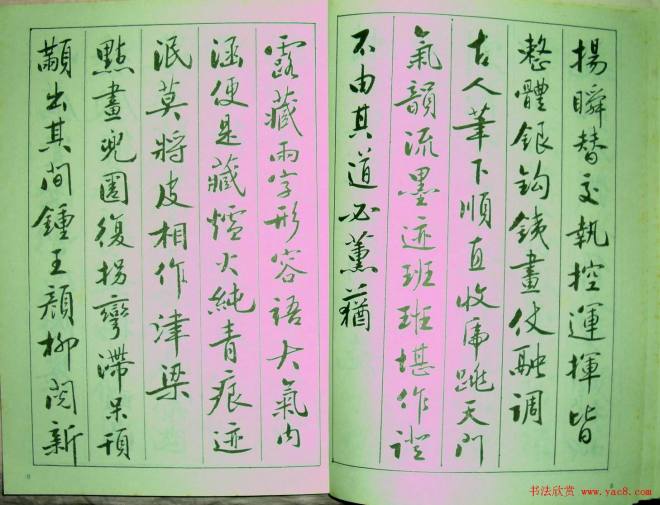 揚瞬替交執控運揮皆
整體銀鈎鉄畫仗融調
古人筆下順直收虎跳天門
氣韻流墨迹班班堪作證
不由其道必薰蕕
露藏兩字形容語大氣内
涵便是藏爐火純青痕迹
泯莫將皮相作津梁
點畫兜圈復拐彎滯呆頓
顙出其间鍾王顔柳闵新
8
书法欣赏 www.yac8.com